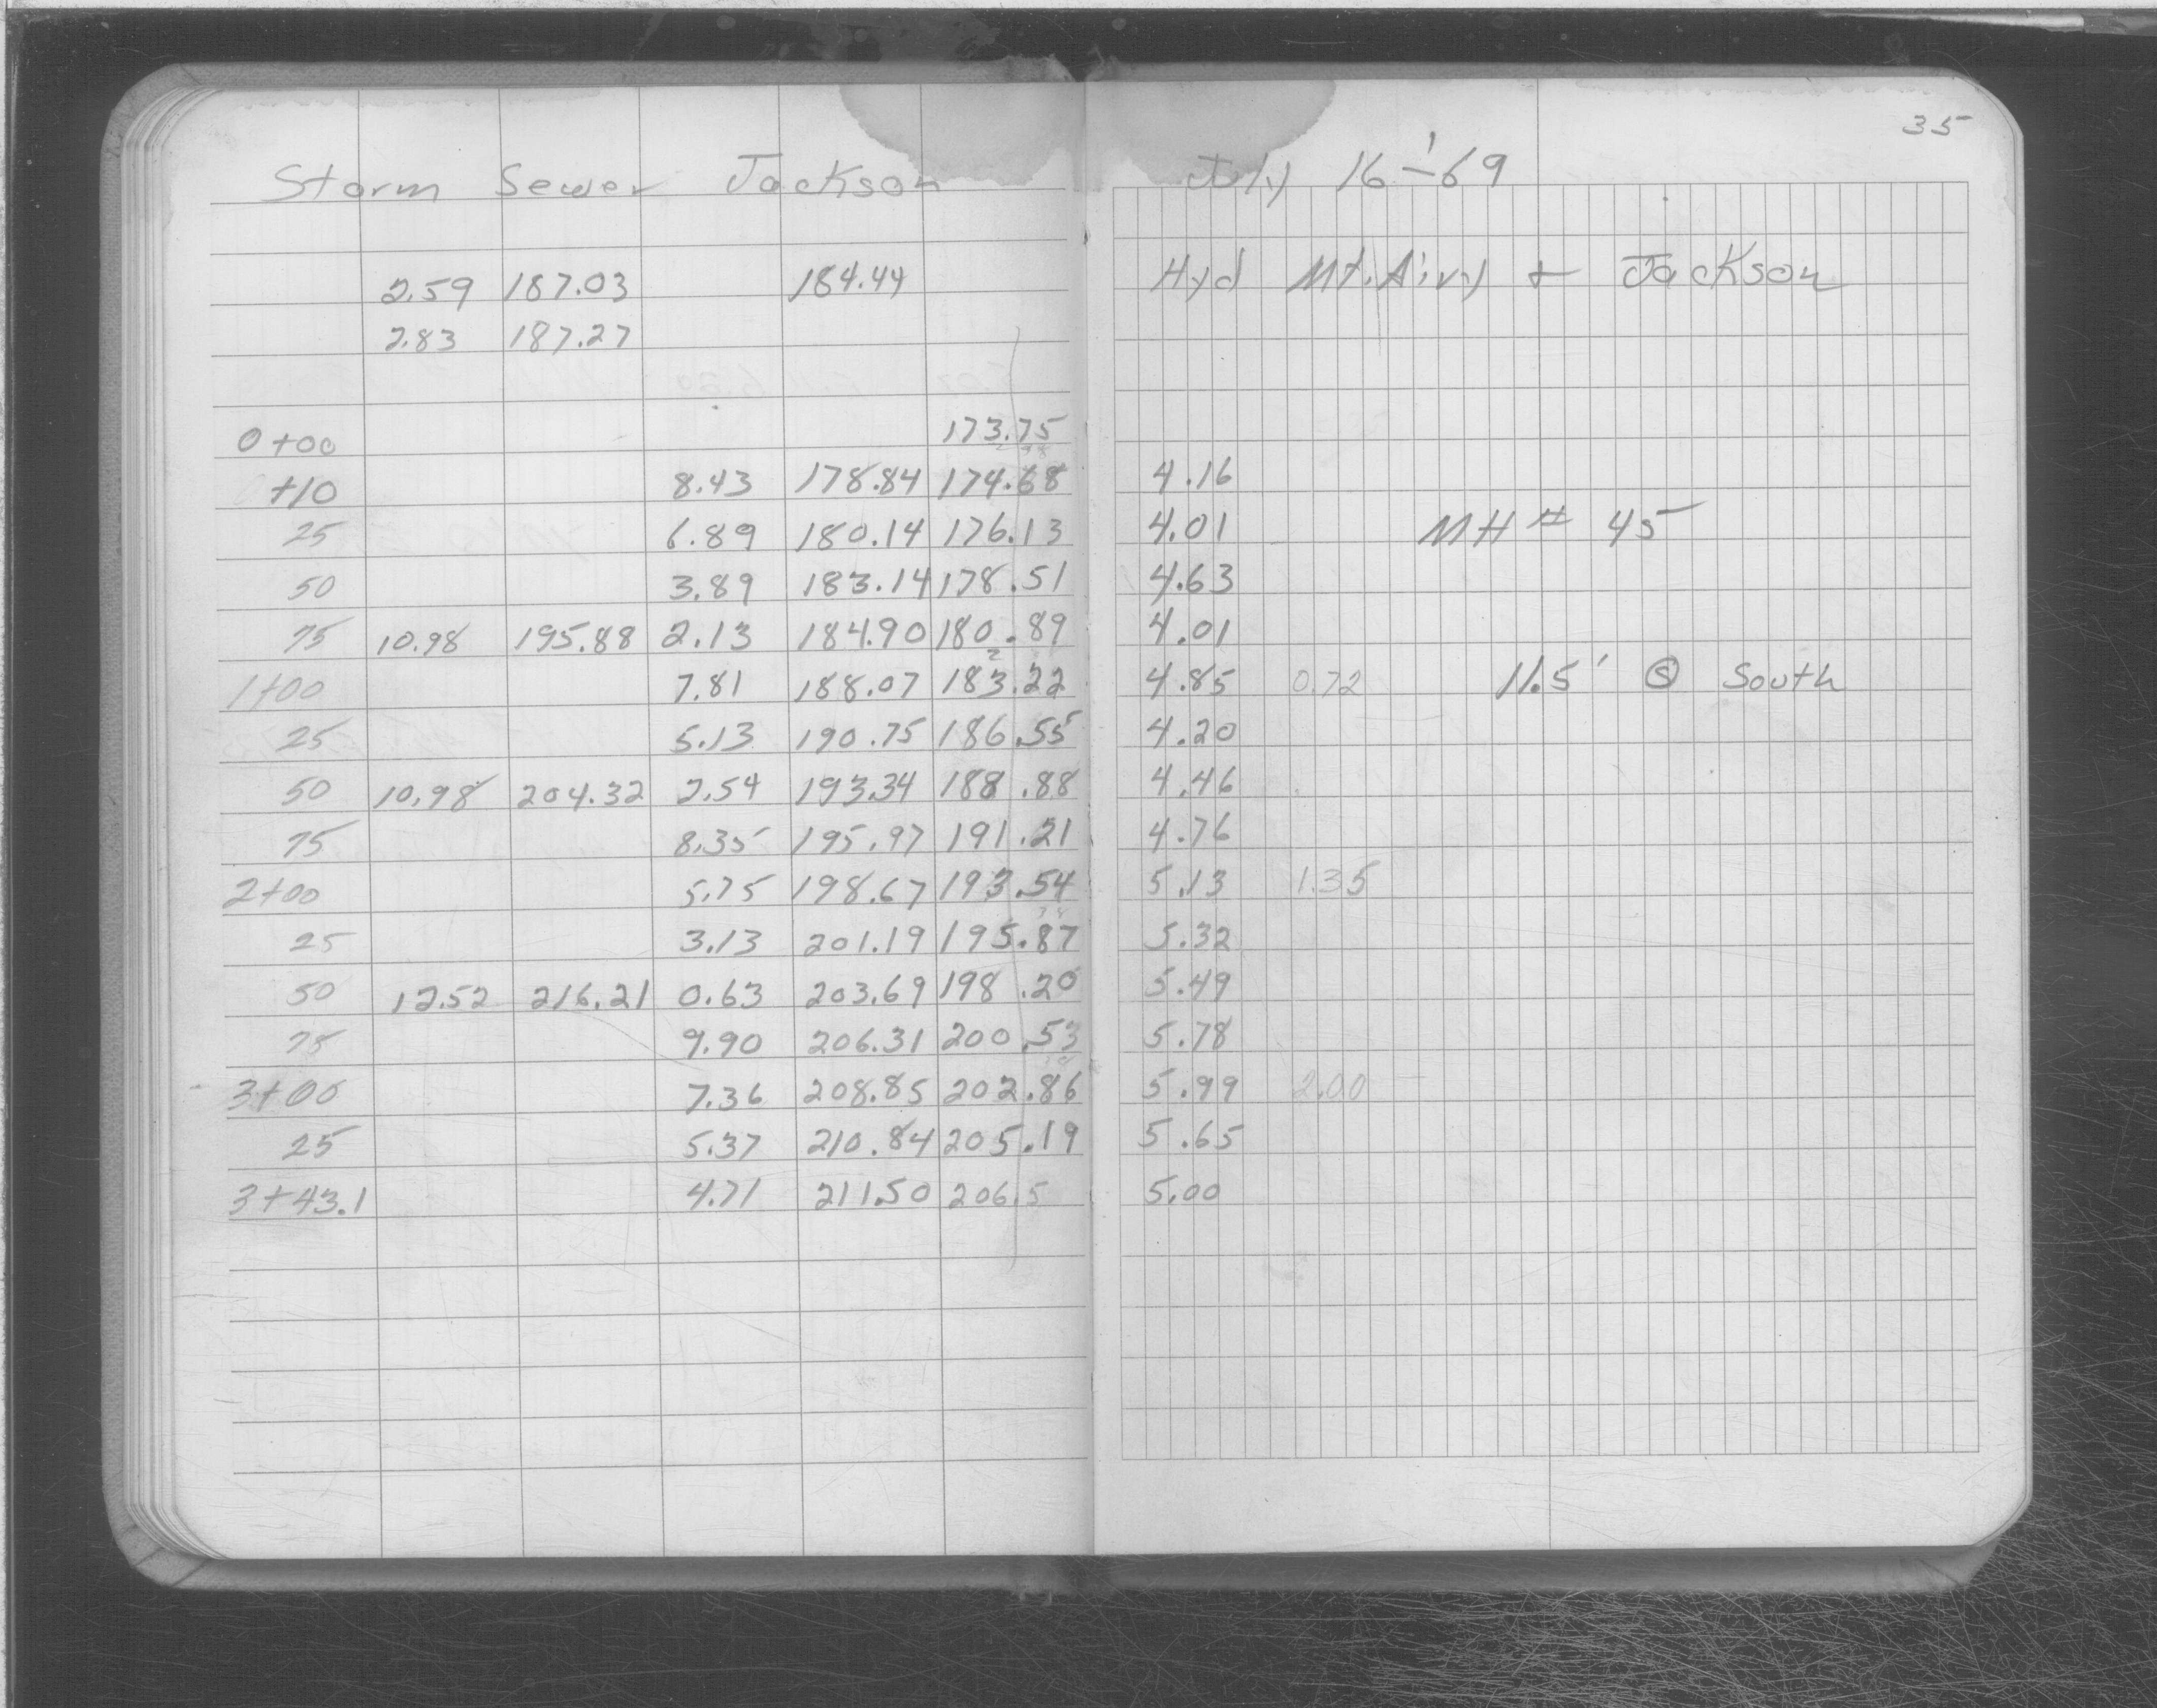 35
Storm Sewer Jackson July 16-'69
2.59 187.03 184.44 Hyd Mt. Airy + Jackson
2.83 187.27
0+00 173.75
+10 8.43 178.84 174.68 4.16
25 6.89 180.14 176.13 4.01 MH # 45
50 3.89 183.14 178.51 4.63
75 10.98 195.88 2.13 184.90 180.89 4.01
1+00 7.81 188.07 183.22 4.85 0.72 11.5' @ South
25 5.13 190.75 186.55 4.20
50 10.98 204.32 2.54 193.34 188.88 4.46
75 8.35 195.97 191.21 4.76
2+00 5.75 198.67 193.54 5.13 1.35
25 3.13 201.19 195.87 5.32
50 12.52 216.21 0.63 203.69 198.20 5.49
75 9.90 206.31 200.53 5.78
3+00 7.36 208.85 202.86 5.99 2.00
25 5.37 210.84 205.19 5.65
3+43.1 4.71 211.50 206.5 5.00